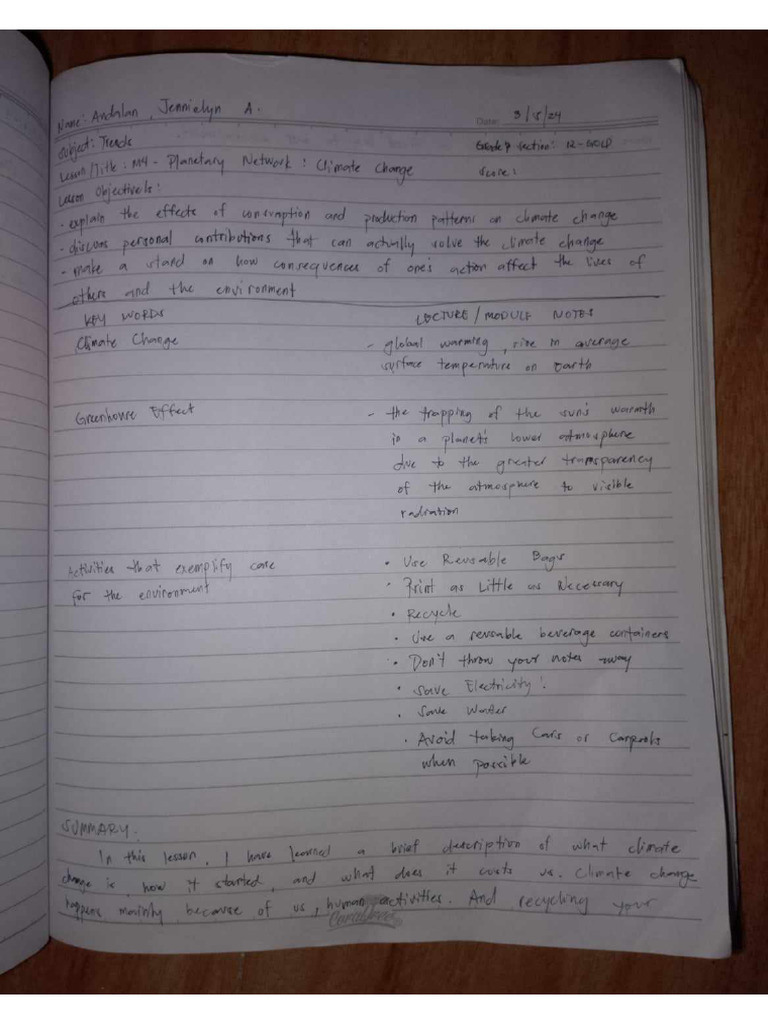 Name: Andalan, Jennielyn A.
Date: 3/15/24
Subject: Trends
Grade & Section: 12-GOLD
Lesson/Title: M4 - Planetary Network: Climate Change
Score:
Lesson Objective/s:
- explain the effects of consumption and production patterns on climate change
- discuss personal contributions that can actually solve the climate change
- make a stand on how consequences of one's action affect the lives of
others and the environment
KEY WORDS
LECTURE / MODULE NOTES
Climate Change
- global warming, rise in average
surface temperature on Earth
Greenhouse Effect
- the trapping of the sun's warmth
in a planet's lower atmosphere
due to the greater transparency
of the atmosphere to visible
radiation
Activities that exemplify care
for the environment
• Use Reusable Bags
• Print as Little as Necessary
• Recycle
• Use a reusable beverage containers
• Don't throw your notes away
• Save Electricity!
• Save Water
• Avoid taking Cars or Carpools
when possible
SUMMARY.
In this lesson, I have learned a brief description of what climate
change is, how it started, and what does it costs us. Climate change
happens mainly because of us, human activities. And recycling your